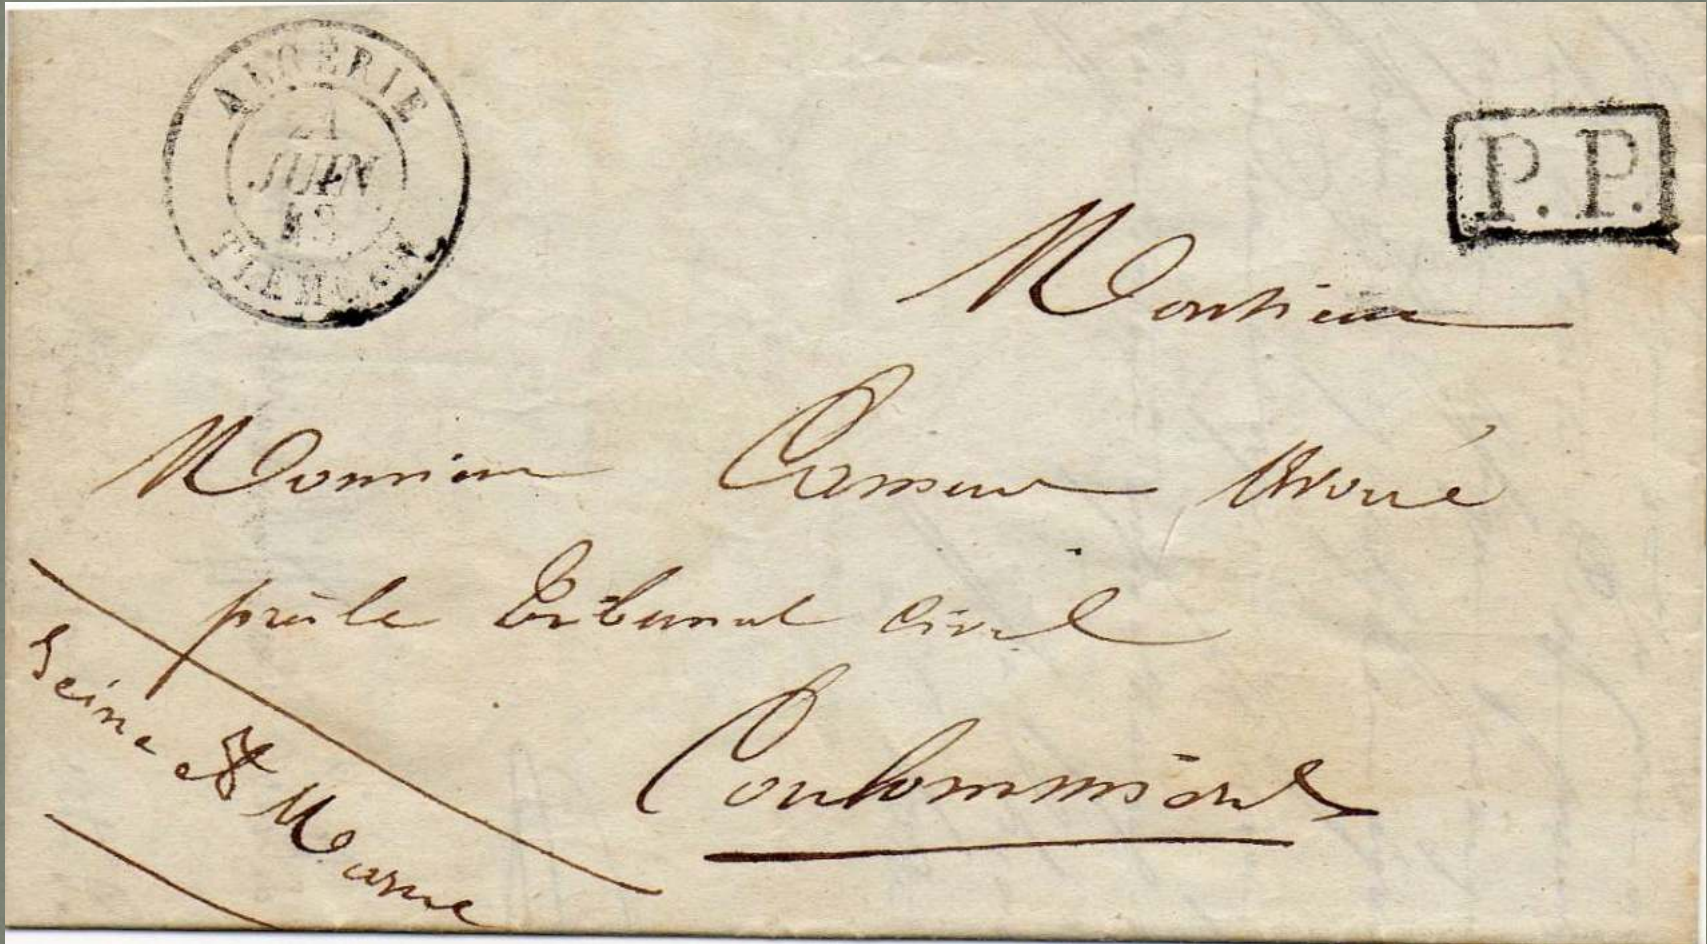 ALGÉRIE
21
JUIN
TLEMCEN
P.P.
Monsieur
Monsieur avoué
près le tribunal civil
Coulommiers
Seine et Marne